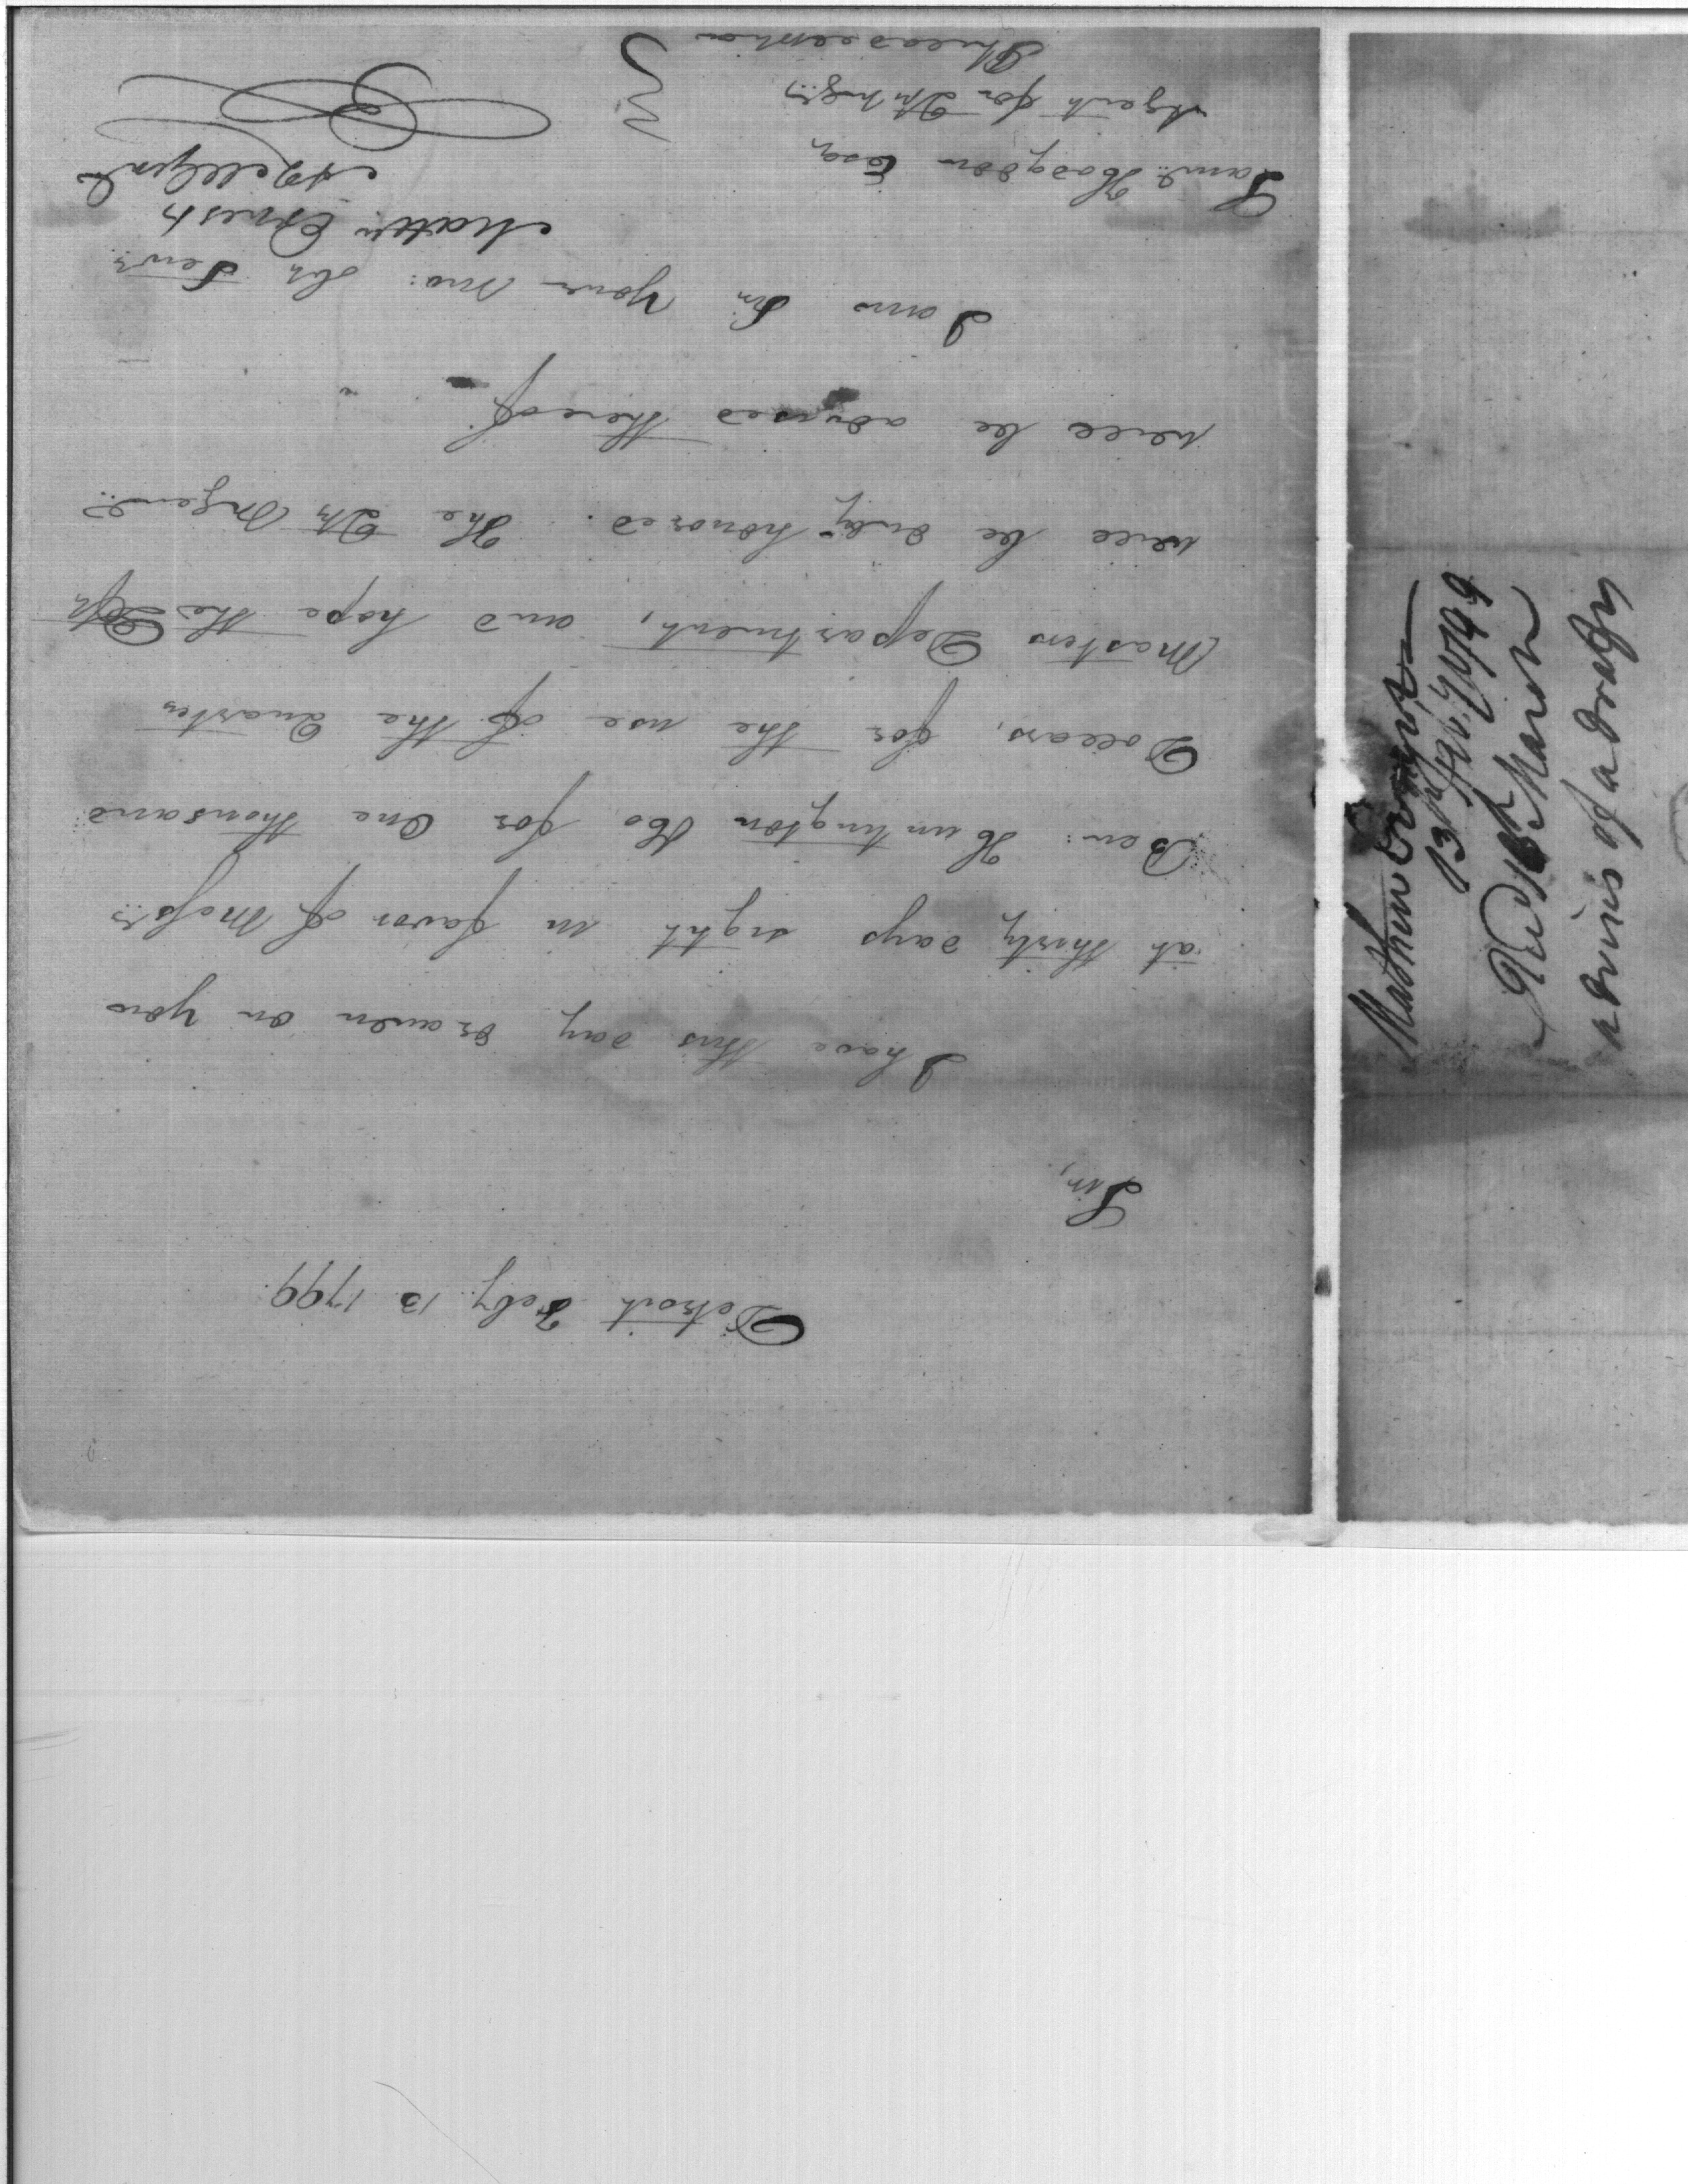 Detroit Feby. 13 1799
Sir,
I have this day drawn on you
at thirty days sight in favor of Messrs
Ben: Huntington & Co for One thousand
Dollars, for the use of the Quarter
Masters Department, and hope the Dft
will be duly honored. The Qr Mr Genl
will be advised thereof.
I am Sir Your Mo: Ob Servt
Matw Ernest
Saml Hodgdon Esq
Agent for
Philadelphia
Matthew Ernest
13th Feby. 1799
Recd 15 March
advises of a draft